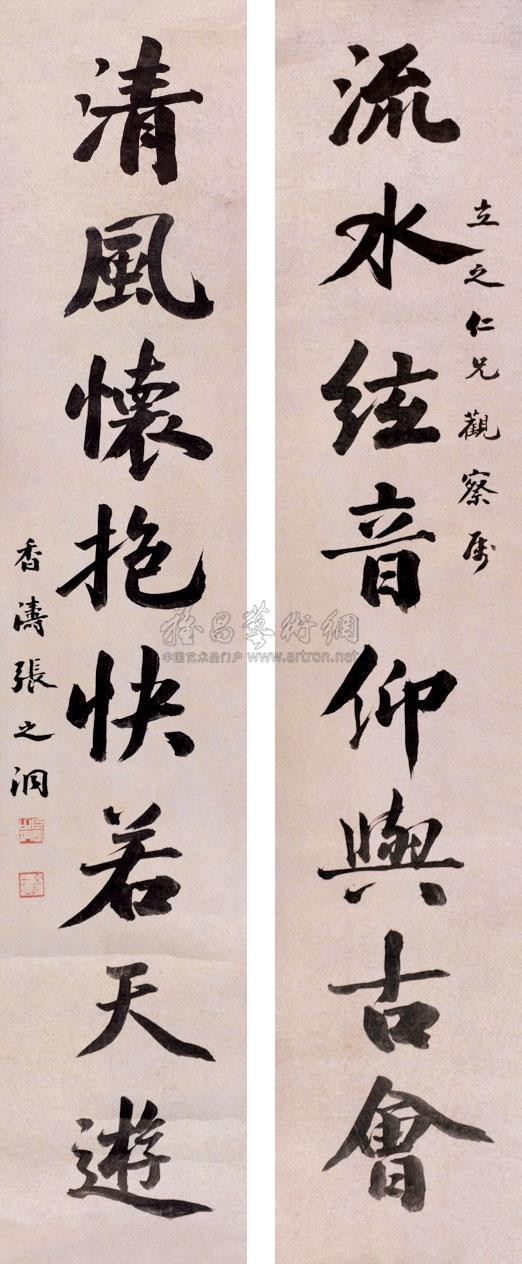 立之仁兄觀察属
流水絃音仰與古會
清風懷抱快若天遊
香濤張之洞
雅昌藝術網
中国艺术品门户 www.artron.net